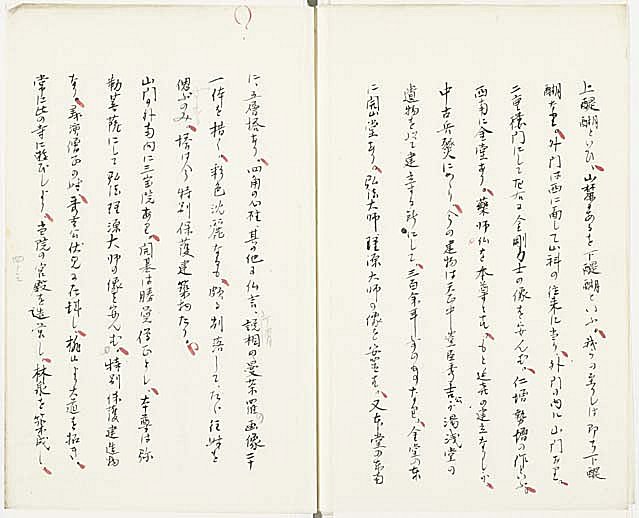 上醍醐といひ、山麓なるを下醍醐といふ。我々の至りしは即ち下醍
醍醐なり。外門は西に面して山科の往来に当り、外門の内に山門あり。
二重楼門にして左右に金剛力士の像を安んず。仁増勢増の作といふ。
西南に金堂あり。薬師仏を本尊とす。もと延喜の建立なりしが
中古兵燹にかゝり、今の建物は天正中豊臣秀吉公が湯浅堂の
遺物を以て建立する所にして、三百余年前のものなり。金堂の東
に開山堂あり。弘法大師理源大師の像を安置す。又本堂の東南
に五層塔あり。四角の心柱其の他に仏言説相の曼荼羅画像二十
一体を描く。彩色沈麗なるも、頗る剥落してたゞ往時を
偲ぶのみ、塔は今特別保護建築物たり。
山門の外南向に三宝院あり。開基は勝覚僧正とし、本尊は弥
勒菩薩にして弘法理源大師の像を安んず。特別保護建造物
なり。義演僧正の時、秀吉公伏見に在城し、桃山より大道を拓き、
常に此の寺に遊びしより、当院の宮殿を造営し、林泉を築成し、